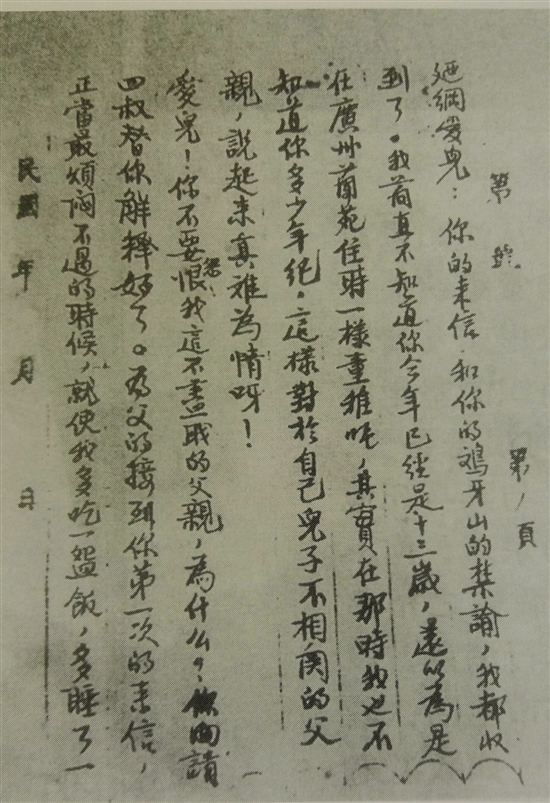 第1頁
第 號
廼綱愛兒：你的来信和你的牙山的，我都收
到了。我简真不知道你今年已經是十三歲，還以為是
在廣州蘭苑住時一樣童稚呢，其實在那時我也不
知道你多少年纪。這樣對於自己兒子不相関的父
親，說起来真难為情呀！
愛兒！你不要怨恨我這不盡职的父親，為什么？你請
四叔替你解釋好了。為父的接到你第一次的来信，
正當最煩悶不過的時候，就使我多吃一盌飯，多睡了一
民國 年 月 日